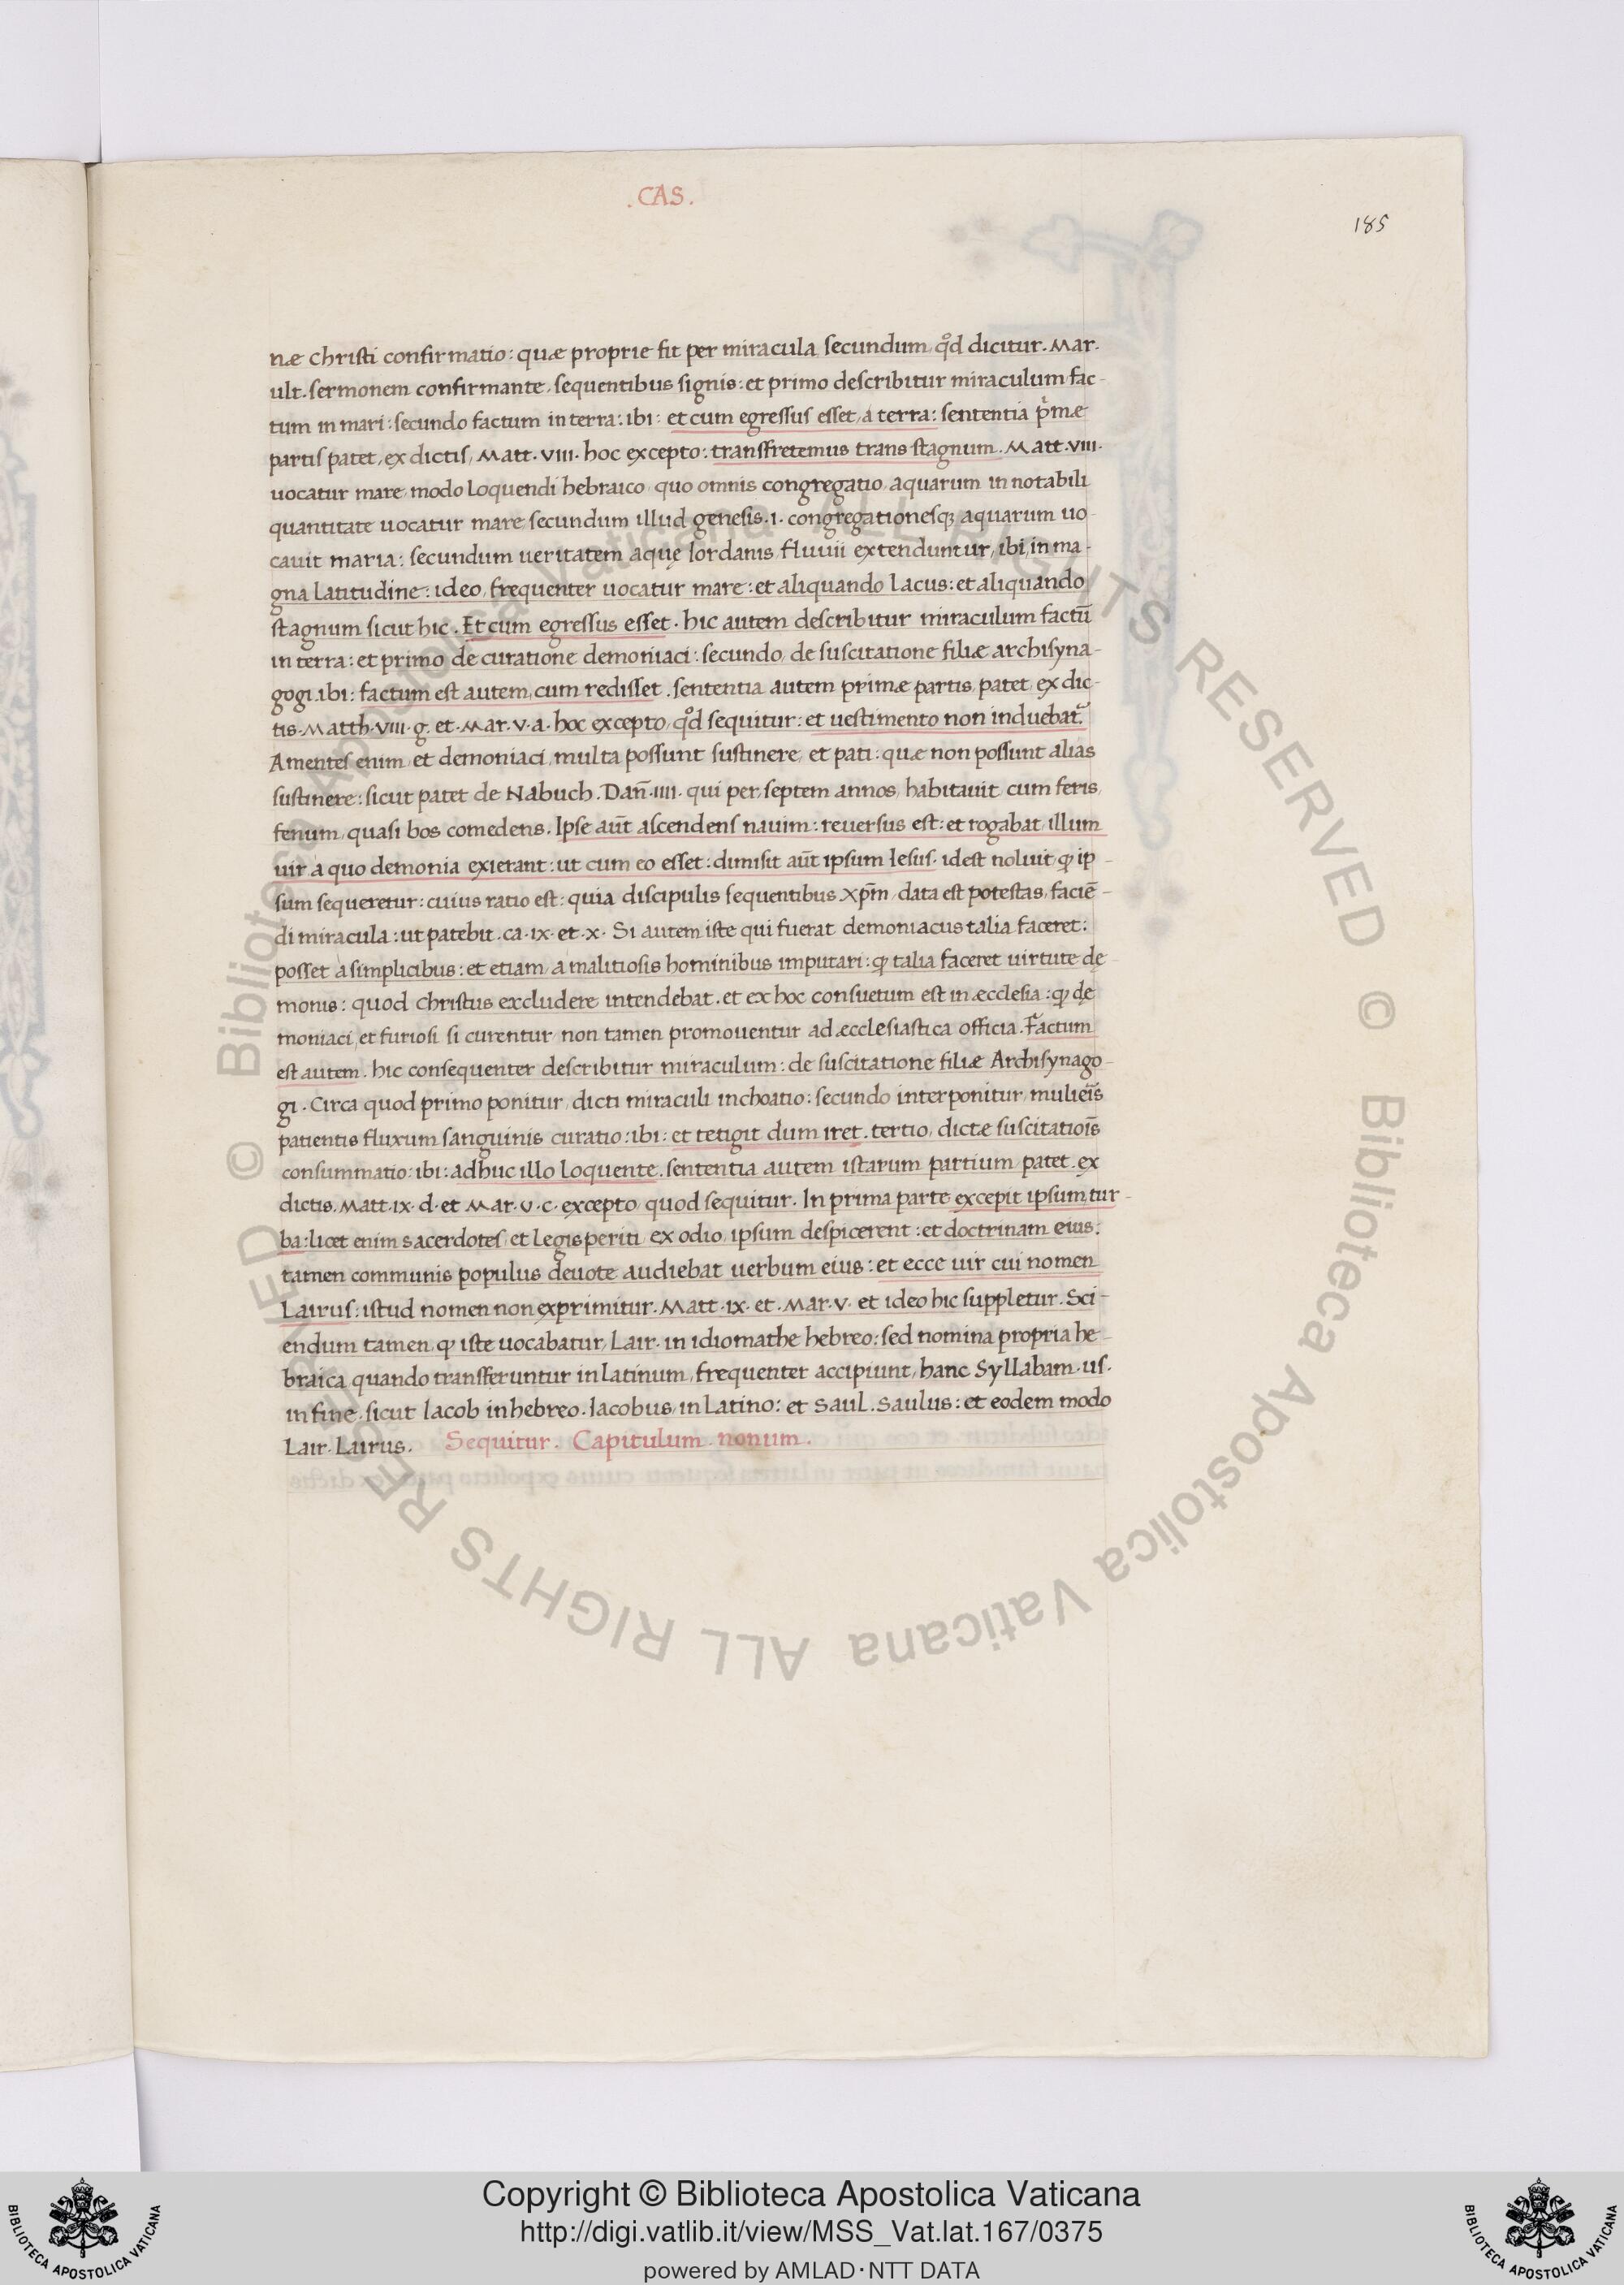 .CAS.
185
næ christi confirmatio: quæ proprie fit per miracula secundum, qd̊ dicitur. Mar.
ult. sermonem confirmante, sequentibus signis: et primo describitur miraculum fac-
tum in mari: secundo factum in terra: ibi: et cum egressus esset, a terra: sententia pͥmæ
partis patet, ex dictis, Matt. VIII. hoc excepto: transfretemus trans stagnum. Matt. VIII.
uocatur mare, modo loquendi hebraico, quo omnis congregatio, aquarum in notabili
quantitate uocatur mare secundum illud genesis. I. congregationesqꝫ aquarum uo-
cauit maria: secundum ueritatem aquę Iordanis, fluuii extenduntur, ibi, in ma-
gna latitudine: ideo, frequenter uocatur mare: et aliquando Lacus: et aliquando
stagnum sicut hic. Et cum egressus esset. hic autem describitur miraculum factū
in terra: et primo de curatione demoniaci: secundo, de suscitatione filiæ archisyna-
gogi. ibi: factum est autem, cum redisset. sententia autem primæ partis, patet, ex dic-
tis. Matth. VIII. g. et. Mar. V. a. hoc excepto, qd̊ sequitur: et uestimento non induebat᷑.
Amentes enim, et demoniaci, multa possunt sustinere, et pati: quæ non possunt alias
sustinere: sicut patet de Nabuch. Dañ. IIII. qui per septem annos, habitauit, cum feris,
fenum, quasi bos comedens. Ipse aūt ascendens nauim: reuersus est: et rogabat, illum
uir a quo demonia exierant: ut cum eo esset: dimisit aūt ipsum Iesus. idest noluit, ꝙ ip-
sum sequeretur: cuius ratio est: quia discipulis sequentibus Xpm̄, data est potestas, faciē-
di miracula: ut patebit. ca. IX. et. X. Si autem iste qui fuerat demoniacus talia faceret:
posset a simplicibus: et etiam, a malitiosis hominibus imputari: ꝙ talia faceret uirtute dę
monis: quod christus excludere intendebat. et ex hoc consuetum est in æcclesia: ꝙ dę
moniaci, et furiosi si curentur, non tamen promouentur ad æcclesiastica officia. Factum
est autem. hic consequenter describitur miraculum: de suscitatione filiæ Archisynago-
gi. Circa quod primo ponitur, dicti miraculi inchoatio: secundo interponitur, mulieīs
patientis fluxum sanguinis curatio: ibi: et tetigit dum iret. tertio, dictæ suscitatiois̄
consummatio: ibi: adhuc illo loquente. sententia autem istarum partium patet. ex
dictis. Matt. IX. d. et Mar. V. c. excepto, quod sequitur. In prima parte excepit ipsum, tur-
ba: licet enim sacerdotes, et Legisperiti, ex odio, ipsum despicerent: et doctrinam eius:
tamen communis populus deuote audiebat uerbum eius: et ecce uir cui nomen
Lairus: istud nomen non exprimitur. Matt. IX. et. Mar. V. et ideo hic suppletur. Sci-
endum tamen, ꝙ iste uocabatur, Lair. in idiomathe hebreo: sed nomina propria he-
braica, quando transferuntur in latinum, frequenter accipiunt, hanc Syllabam. us.
in fine. sicut Iacob in hebreo. Iacobus, in Latino: et Saul. Saulus: et eodem modo
Lair. Lairus. Sequitur. Capitulum. nonum.
© Biblioteca Apostolica Vaticana ALL RIGHTS RESERVED © Biblioteca Apostolica Vaticana ALL RIGHTS RESERVED
Copyright © Biblioteca Apostolica Vaticana
http://digi.vatlib.it/view/MSS_Vat.lat.167/0375
powered by AMLAD·NTT DATA
BIBLIOTECA APOSTOLICA VATICANA
BIBLIOTECA APOSTOLICA VATICANA